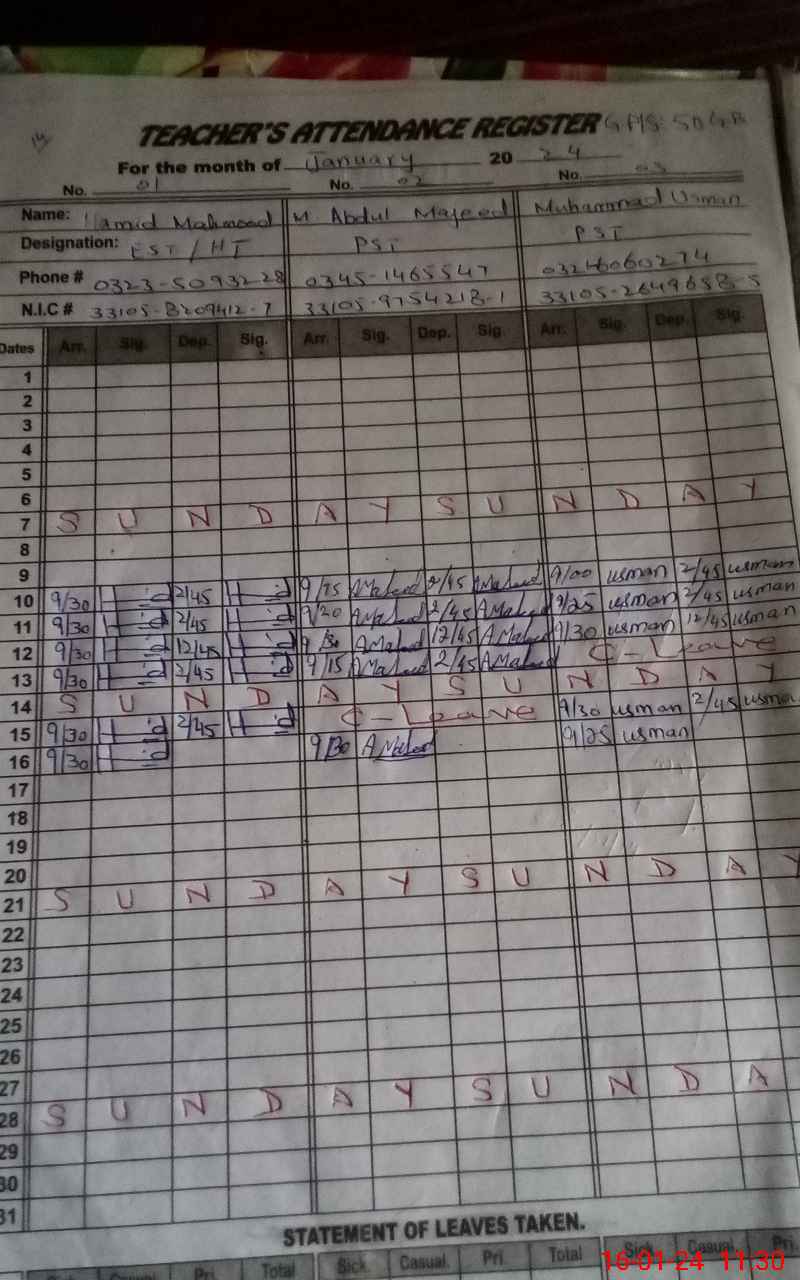 TEACHER'S ATTENDANCE REGISTER
For the month of January 20 24
No. 01 No. 02 No. 03
Name: Hamid Mahmood M Abdul Majeed Muhammad Usman
Designation: EST/HT PST PST
Phone # 0323-5093228 0345-1465547 03246060274
N.I.C # 33105-8209412-7 33105-9754218-1 33105-2649658-5
Dates Arr. Sig. Dep. Sig. Arr. Sig. Dep. Sig. Arr. Sig. Dep. Sig.
1
2
3
4
5
6
7 S U N D A Y S U N D A Y
8
9
10 9/30 H-id 2/45 H-id 9/15 AMajeed 2/45 AMajeed 9/00 usman 2/45 usman
11 9/30 H-id 2/45 H-id 9/20 AMajeed 2/45 AMajeed 9/25 usman 2/45 usman
12 9/30 H-id 12/45 H-id 9/30 AMajeed 12/45 AMajeed 9/30 usman 12/45 usman
13 9/30 H-id 2/45 H-id 9/15 AMajeed 2/45 AMajeed C-Leave
14 S U N D A Y S U N D A Y
15 9/30 H-id 2/45 H-id C-Leave 9/30 usman 2/45 usman
16 9/30 H-id 9/30 AMajeed 9/25 usman
17
18
19
20
21 S U N D A Y S U N D A Y
22
23
24
25
26
27
28 S U N D A Y S U N D A
29
30
31
STATEMENT OF LEAVES TAKEN.
Sick. Casual. Pri. Total Sick. Casual. Pri. Total Sick. Casual. Pri.
16-01-24 11:30